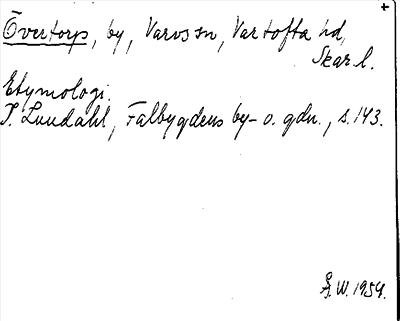 +
Övertorp, by, Varvs sn, Vartofta hd,
Skar. l.
Etymologi.
I. Lundahl, Falbygdens by- o. gdn., s. 143.
Å. W. 1959.